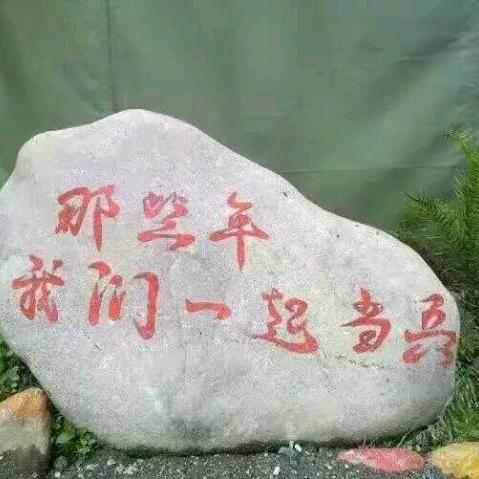 那些年
我们一起当兵